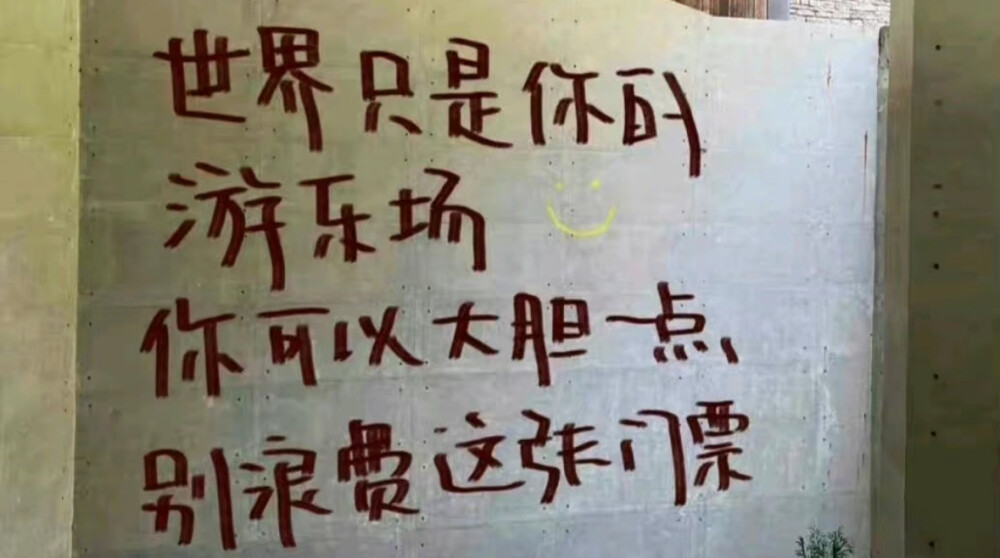 世界只是你的
游乐场
你可以大胆一点、
别浪费这张门票